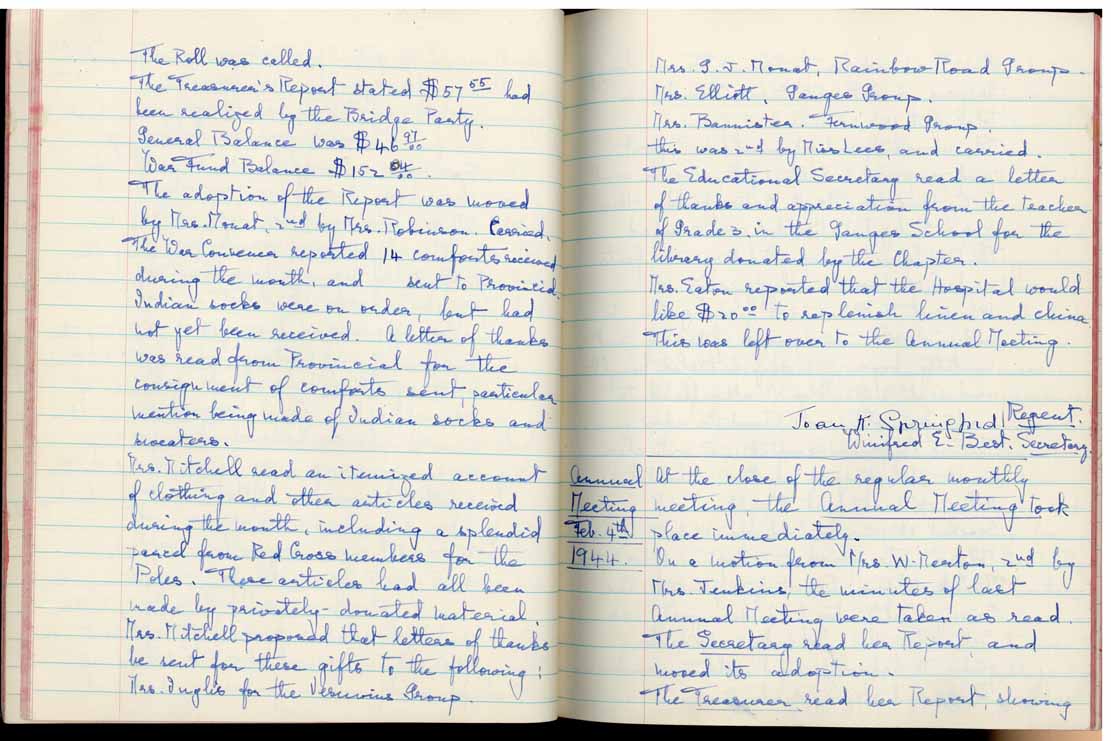 The Roll was called.
The Treasurer's Report stated $57 55 had
been realized by the Bridge Party.
General Balance was $46 97/00
War Fund Balance $152 04/00.
The adoption of the Report was moved
by Mrs. Mouat, 2nd by Mrs. Robinson. Carried.
The War Convener reported 14 comforts received
during the month, and sent to Provincial.
Indian socks were on order, but had
not yet been received. A letter of thanks
was read from Provincial for the
consignment of comforts sent, particular
mention being made of Indian socks and
sweaters.
Mrs. Mitchell read an itemized account
of clothing and other articles received
during the month, including a splendid
parcel from Red Cross members for the
Poles. These articles had all been
made by privately-donated material.
Mrs. Mitchell proposed that letters of thanks
be sent for these gifts to the following:
Mrs. Inglis for the Vesuvius Group.
Mrs. G. J. Mouat, Rainbow Road Group.
Mrs. Elliott, Ganges Group.
Mrs. Bannister. Fernwood Group.
this was 2nd by Miss Lees, and carried.
The Educational Secretary read a letter
of thanks and appreciation from the teacher
of Grade 3. in the Ganges School for the
library donated by the Chapter.
Mrs. Eaton reported that the Hospital would
like $20 00 to replenish linen and china
This was left over to the Annual Meeting.
Joan H. Springford, Regent.
Winifred E. Best. Secretary.
Annual Meeting Feb. 4th 1944.
At the close of the regular monthly
meeting, the Annual Meeting Tock
place immediately.
On a motion from Mrs. W. Norton, 2nd by
Mrs. Jenkins, the minutes of last
Annual Meeting were taken as read.
The Secretary read her Report, and
moved its adoption.
The Treasurer read her Report, showing